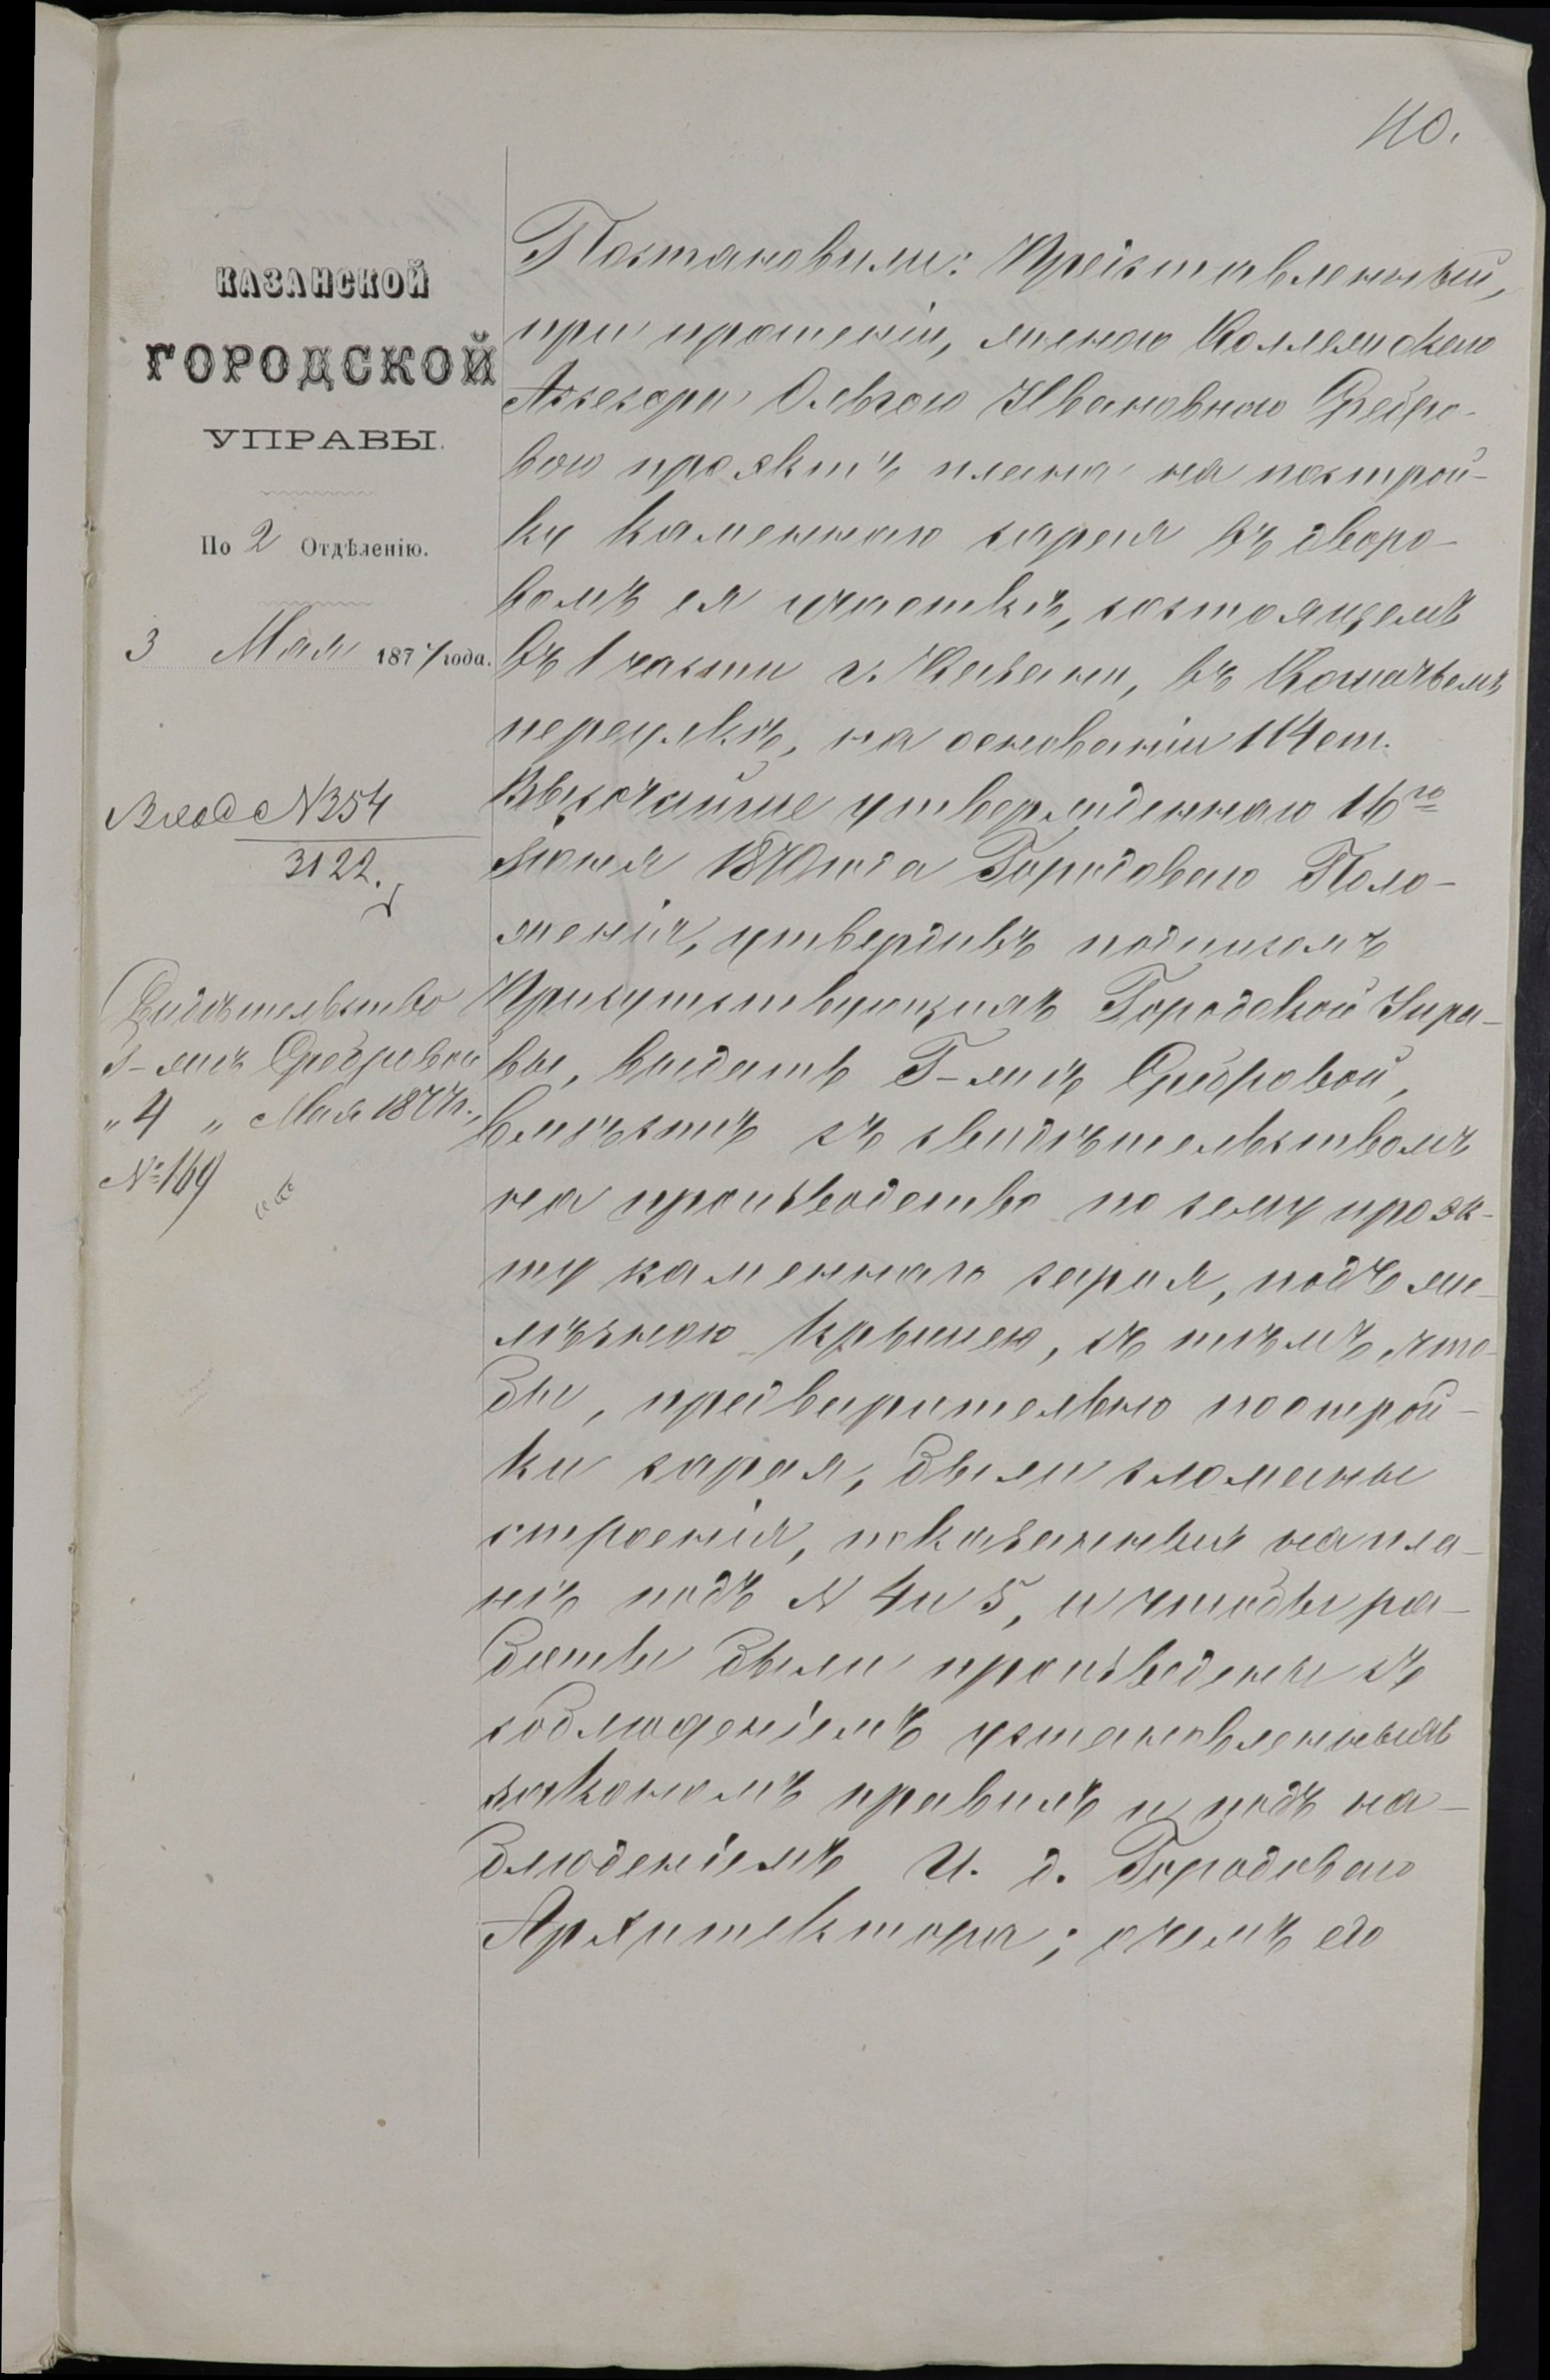 40.
КАЗАНСКОЙ
ГОРОДСКОЙ
УПРАВЫ.
По 2 Отдѣленію.
3 Мая 1877 года.
Вход №354
3122.
Свидѣтельство
г-жѣ Сребровой
„4„ Мая 1877 г.,
№ 169
Постановили: Представленный,
при прошеніи, женою Коллежскаго
Ассесора Ольгою Ивановною Сребро-
вою проэктъ плана на построй-
ку каменнаго сарая въ дворо-
вомъ ея участкѣ, состоящемъ
въ 1 части г. Казани, въ Кошачьемъ
переулкѣ, на основаніи 114 ст.
Высочайше утвержденнаго 16го
Іюня 1870 года Городоваго Поло-
женія, утвердивъ подписомъ
Присутствующихъ Городской Упра-
вы, выдать Г-жѣ Сребровой,
вмѣстѣ съ свидѣтельствомъ
на производство по сему проэк-
ту каменнаго сарая, подъ же-
лѣзною крышею, съ тѣмъ, что-
бы, предварительно построй-
ки сарая, были сломаны
строенія, показанныя на пла-
нѣ подъ № 4 и 5, и чтобы ра-
боты были произведены съ
соблюденіемъ установленныхъ
закономъ правилъ и подъ на-
блюденіемъ И. д. Городоваго
Архитектора; о чемъ его